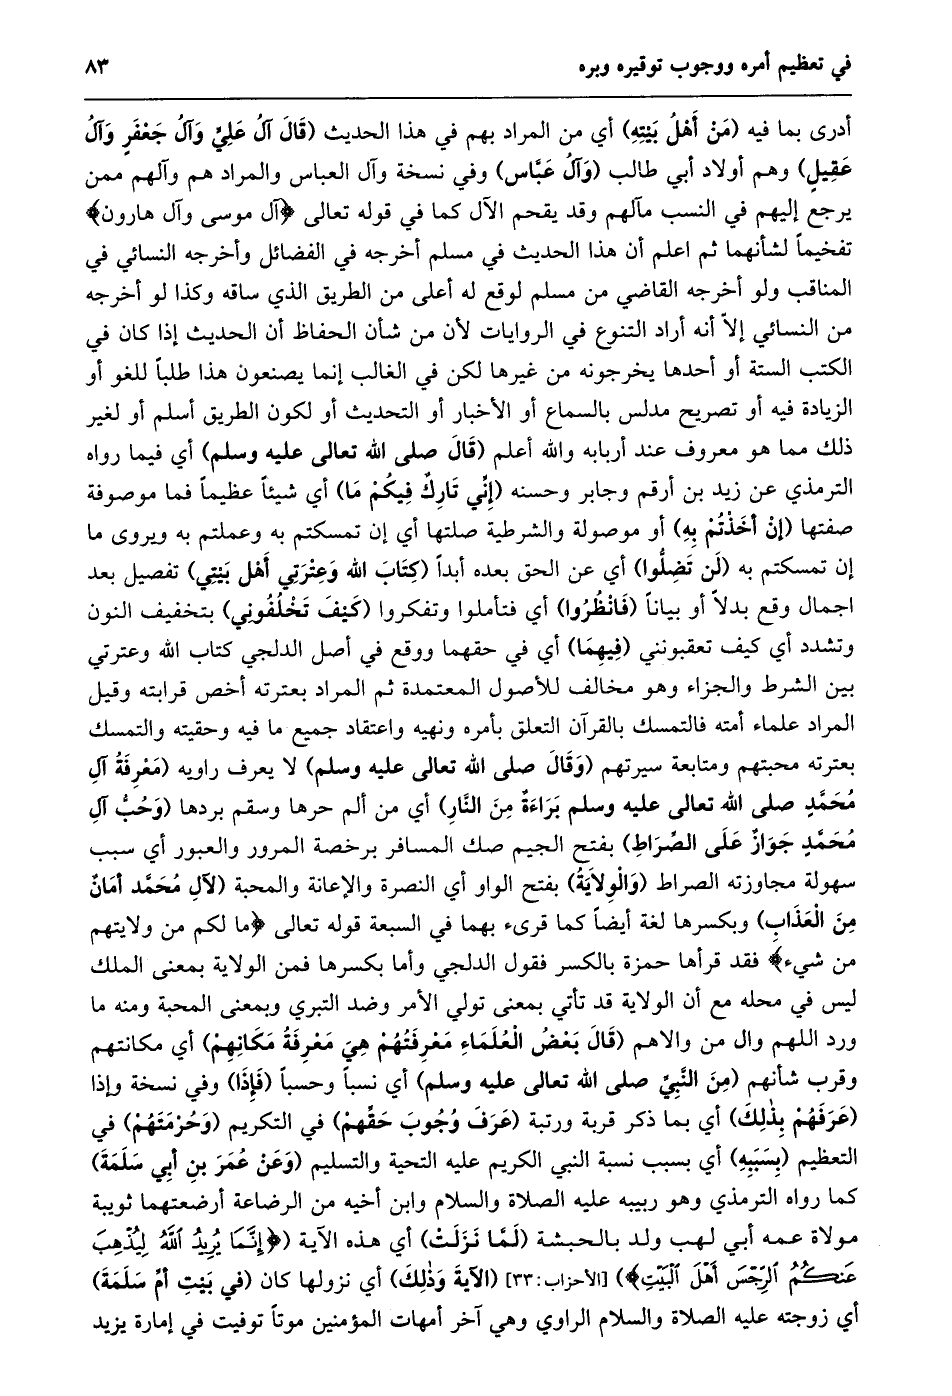 في تعظيم أمره ووجوب توقيره وبره ٨٣
أدرى بما فيه (مَنْ أَهْلُ بَيْتِهِ) أي من المراد بهم في هذا الحديث (قَالَ آلُ عَلِيٍّ وَآلُ جَعْفَرٍ وَآلُ
عَقِيلٍ) وهم أولاد أبي طالب (وَآلُ عَبَّاسٍ) وفي نسخة وآل العباس والمراد هم وآلهم ممن
يرجع إليهم في النسب مآلهم وقد يقحم الآل كما في قوله تعالى ﴿آل موسى وآل هارون﴾
تفخيماً لشأنهما ثم اعلم أن هذا الحديث في مسلم أخرجه في الفضائل وأخرجه النسائي في
المناقب ولو أخرجه القاضي من مسلم لوقع له أعلى من الطريق الذي ساقه وكذا لو أخرجه
من النسائي إلاّ أنه أراد التنوع في الروايات لأن من شأن الحفاظ أن الحديث إذا كان في
الكتب الستة أو أحدها يخرجونه من غيرها لكن في الغالب إنما يصنعون هذا طلباً للغو أو
الزيادة فيه أو تصريح مدلس بالسماع أو الأخبار أو التحديث أو لكون الطريق أسلم أو لغير
ذلك مما هو معروف عند أربابه والله أعلم (قَالَ صلى الله تعالى عليه وسلم) أي فيما رواه
الترمذي عن زيد بن أرقم وجابر وحسنه (إِنِّي تَارِكٌ فِيكُمْ مَا) أي شيئاً عظيماً فما موصوفة
صفتها (إنْ أخَذْتُمْ بِهِ) أو موصولة والشرطية صلتها أي إن تمسكتم به وعملتم به ويروى ما
إن تمسكتم به (لَن تَضِلُّوا) أي عن الحق بعده أبداً (كِتَابَ الله وَعِتْرَتِي أَهْل بَيْتِي) تفصيل بعد
اجمال وقع بدلاً أو بياناً (فَانْظُرُوا) أي فتأملوا وتفكروا (كَيْفَ تَخْلُفُونِي) بتخفيف النون
وتشدد أي كيف تعقبونني (فِيهِمَا) أي في حقهما ووقع في أصل الدلجي كتاب الله وعترتي
بين الشرط والجزاء وهو مخالف للأصول المعتمدة ثم المراد بعترته أخص قرابته وقيل
المراد علماء أمته فالتمسك بالقرآن التعلق بأمره ونهيه واعتقاد جميع ما فيه وحقيته والتمسك
بعترته محبتهم ومتابعة سيرتهم (وَقَالَ صلى الله تعالى عليه وسلم) لا يعرف راويه (مَعْرِفَةُ آلِ
مُحَمَّدٍ صلى الله تعالى عليه وسلم بَرَاءَةٌ مِنَ النَّارِ) أي من ألم حرها وسقم بردها (وَحُبُّ آلِ
مُحَمَّدٍ جَوَازٌ عَلَى الصِّرَاطِ) بفتح الجيم صك المسافر برخصة المرور والعبور أي سبب
سهولة مجاوزته الصراط (وَالْوِلاَيَةُ) بفتح الواو أي النصرة والإعانة والمحبة (لآلِ مُحَمَّد أمَانٌ
مِنَ الْعَذَابِ) وبكسرها لغة أيضاً كما قرىء بهما في السبعة قوله تعالى ﴿ما لكم من ولايتهم
من شيء﴾ فقد قرأها حمزة بالكسر فقول الدلجي وأما بكسرها فمن الولاية بمعنى الملك
ليس في محله مع أن الولاية قد تأتي بمعنى تولي الأمر وضد التبري وبمعنى المحبة ومنه ما
ورد اللهم وال من والاهم (قَالَ بَعْضُ الْعُلَمَاءِ مَعْرِفَتُهُمْ هِيَ مَعْرِفَةُ مَكَانِهِمْ) أي مكانتهم
وقرب شأنهم (مِنَ النَّبِيِّ صلى الله تعالى عليه وسلم) أي نسباً وحسباً (فَإِذَا) وفي نسخة وإذا
(عَرَفَهُمْ بِذٰلِكَ) أي بما ذكر قربة ورتبة (عَرَفَ وُجُوبَ حَقِّهِمْ) في التكريم (وَحُرْمَتَهُمْ) في
التعظيم (بِسَبَبِهِ) أي بسبب نسبة النبي الكريم عليه التحية والتسليم (وَعَنْ عُمَرَ بنِ أَبِي سَلَمَةَ)
كما رواه الترمذي وهو ربيبه عليه الصلاة والسلام وابن أخيه من الرضاعة أرضعتهما ثويبة
مولاة عمه أبي لهب ولد بالحبشة (لَمَّا نَزَلَتْ) أي هذه الآية (﴿إِنَّمَا يُرِيدُ ٱللَّهُ لِيُذْهِبَ
عَنكُمُ ٱلرِّجْسَ أَهْلَ ٱلْبَيْتِ﴾) [الأحزاب: ٣٣] (الآيَةَ وَذٰلِكَ) أي نزولها كان (في بَيْتِ أمِّ سَلَمَةَ)
أي زوجته عليه الصلاة والسلام الراوي وهي آخر أمهات المؤمنين موتاً توفيت في إمارة يزيد